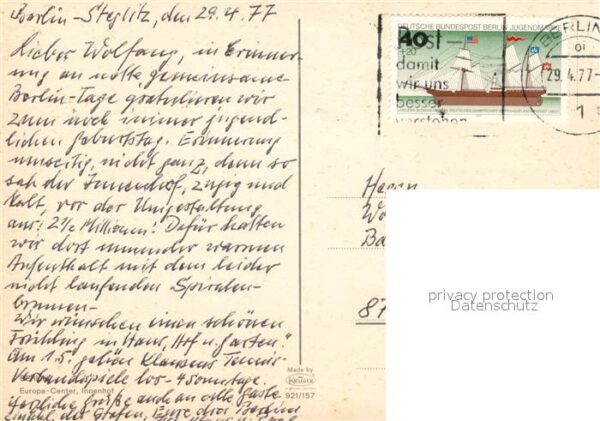 Berlin-Steglitz, den 29.4.77
Lieber Wolfgang, in Erinner-
ung an nette gemeinsame
Berlin-Tage gratulieren wir
zum noch immer jugend-
lichen Geburtstag. Erinnerung
umseitig, nicht ganz, denn so
sah der Innenhof, zugig und
kalt, vor der Umgestaltung
aus! 2½ Millionen! Dafür hatten
wir dort immender warmen
Aufenthalt mit dem leider
nicht laufenden Spiralen-
brunnen-
Wir wünschen einen schönen
Frühling in Haus, Hof u. Garten.
Am 1.5. gehen Klausens Tennis-
Verbandsspiele los - 4 Sonntage.
Europa-Center, Innenhof
Herzliche Grüße auch an alle Gäste
Eure drei Berliner
Made by
Krüger
921/157
DEUTSCHE BUNDESPOST BERLIN JUGENDMARKE
40
+20
Post-
damit
wir uns
besser
verstehen
BERLIN
29.4.77-
1
Herrn
Wo
Ba
87
privacy protection
Datenschutz